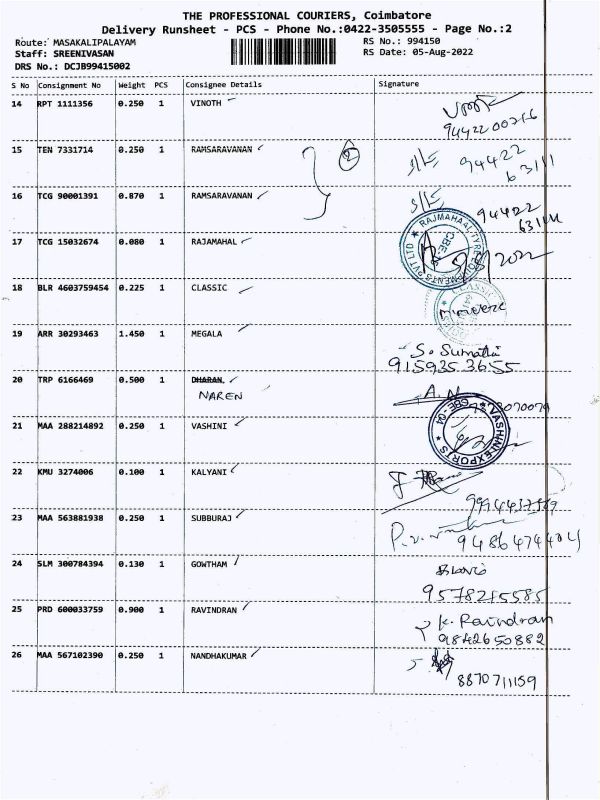 THE PROFESSIONAL COURIERS, Coimbatore
Delivery Runsheet - PCS - Phone No.:0422-3505555 - Page No.:2
Route: MASAKALIPALAYAM RS No.: 994150
Staff: SREENIVASAN RS Date: 05-Aug-2022
DRS No.: DCJB99415002
S No Consignment No Weight PCS Consignee Details Signature
14 RPT 1111356 0.250 1 VINOTH
15 TEN 7331714 0.250 1 RAMSARAVANAN 2 94422
63111
16 TCG 90001391 0.870 1 RAMSARAVANAN 94422
63111
17 TCG 15032674 0.080 1 RAJAMAHAL
18 BLR 4603759454 0.225 1 CLASSIC
19 ARR 30293463 1.450 1 MEGALA S. Sumathi
9159353655
20 TRP 6166469 0.500 1 DHARAN. A.N
NAREN
21 MAA 288214892 0.250 1 VASHINI VASHINI EXPORTS CBE-04
22 KMU 3274006 0.100 1 KALYANI
23 MAA 563881938 0.250 1 SUBBURAJ
9486474404
24 SLM 300784394 0.130 1 GOWTHAM
9578215585
25 PRD 600033759 0.900 1 RAVINDRAN K. Ravindran
9842650882
26 MAA 567102390 0.250 1 NANDHAKUMAR
8870711159